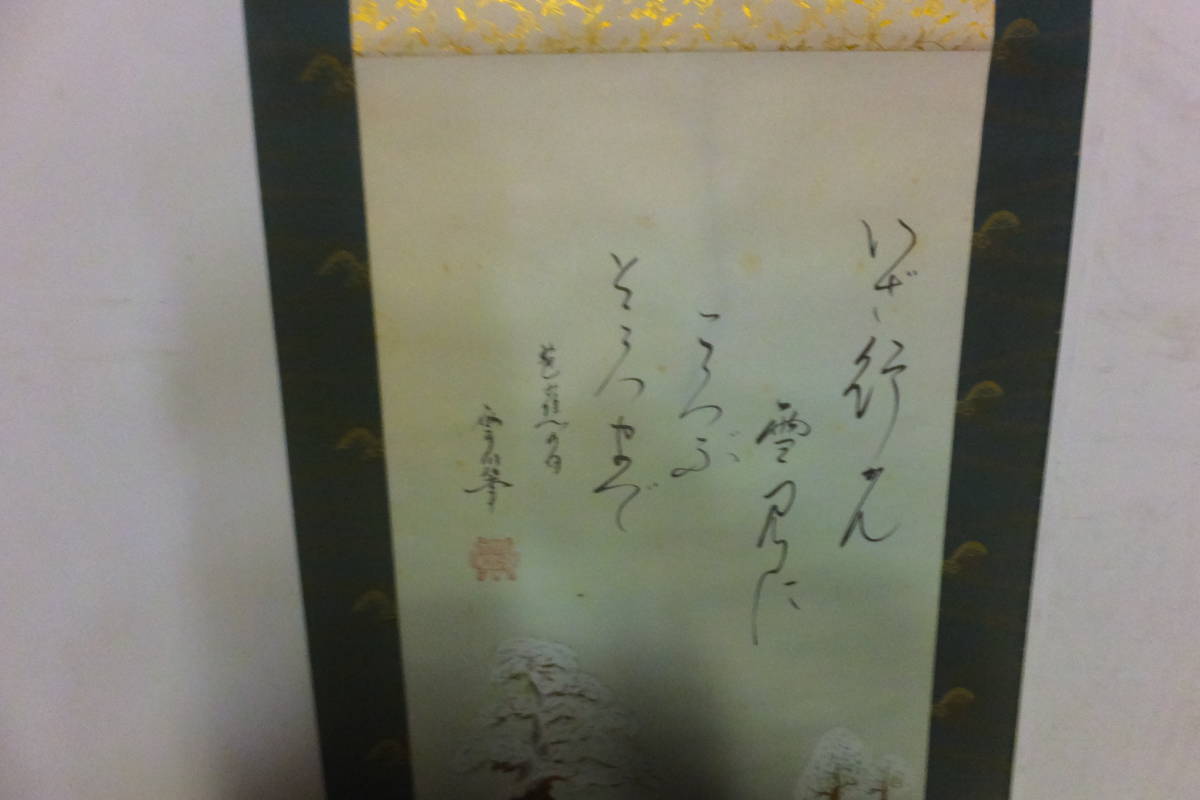 いざ行ん
雪見に
ころぶ
ところまで
芭蕉の句